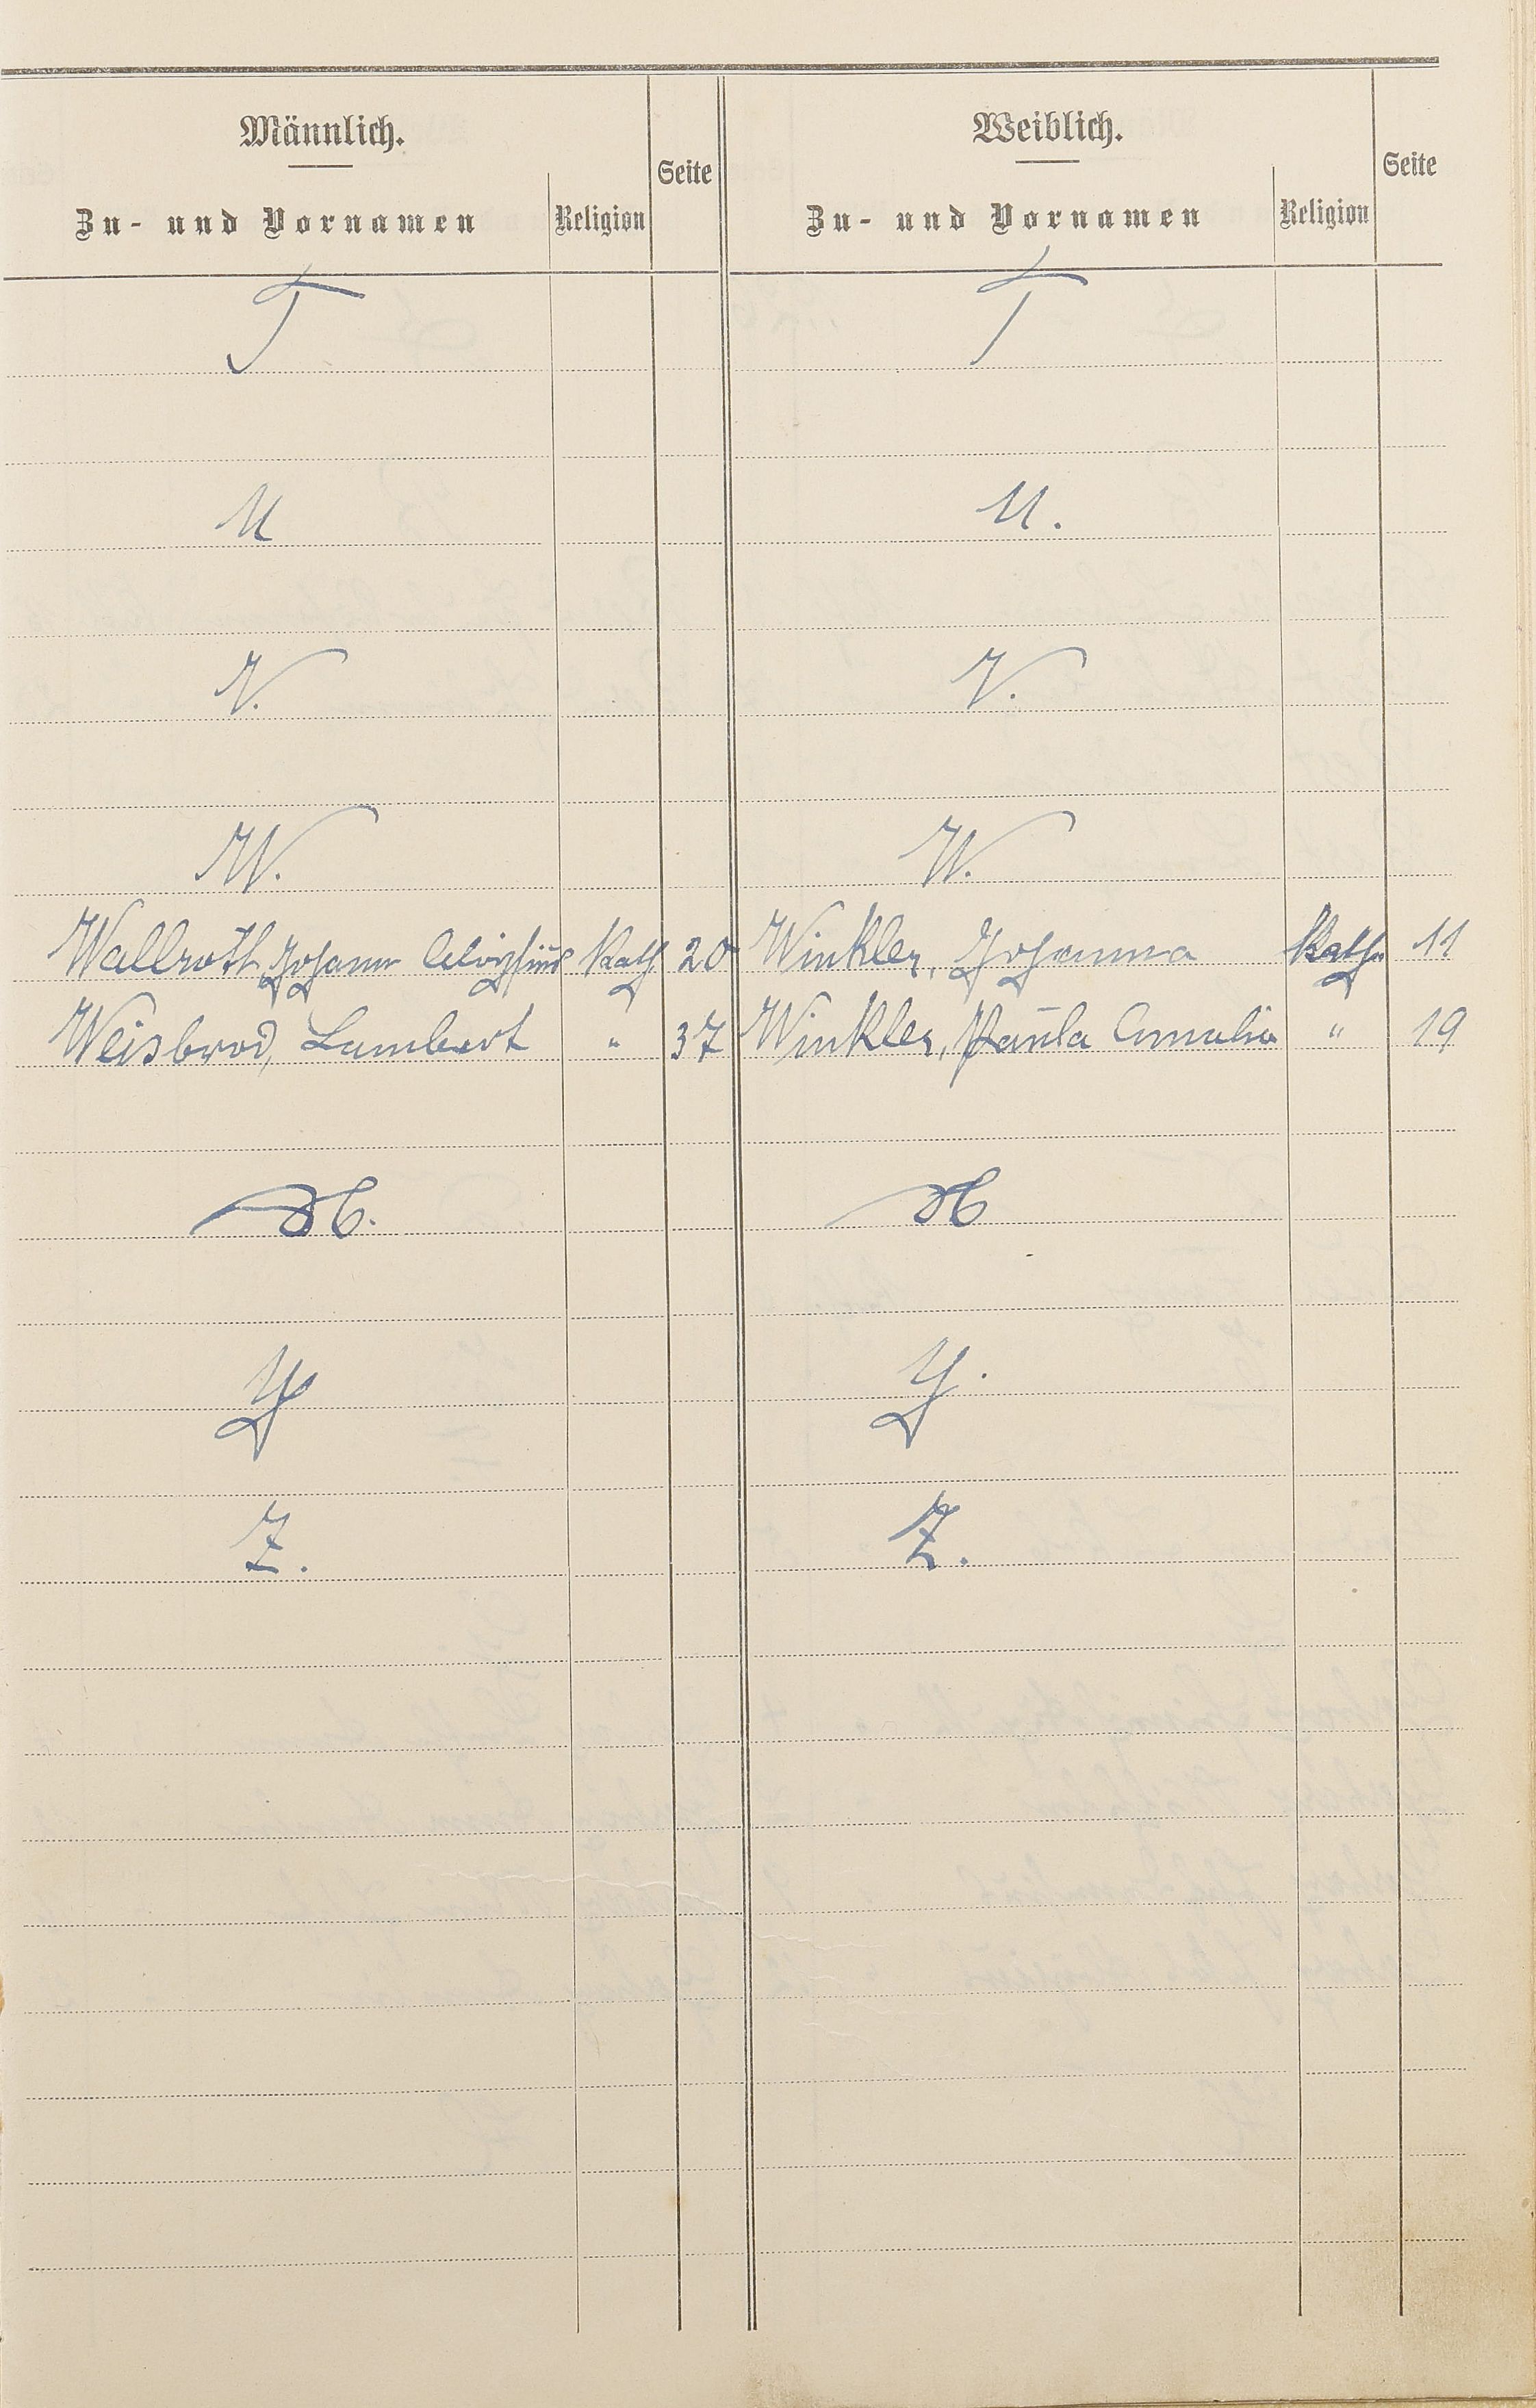 Männlich. Seite Weiblich. Seite
Zu- und Vornamen Religion Zu- und Vornamen Religion
T T
U U.
V. V.
W. W.
Wallroth, Johann Aloysius Kath 20 Winkler, Johanna Kath. 11
Weisbrod, Lambert " 37 Winkler, Paula Amalia " 19
X. X
Y Y.
Z. Z.